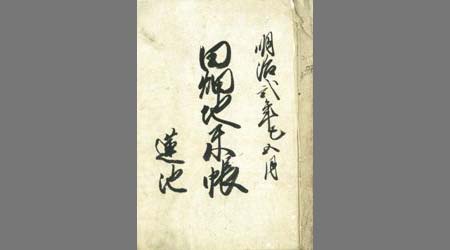 明治弐年巳五月
田畑地米帳
蓮池